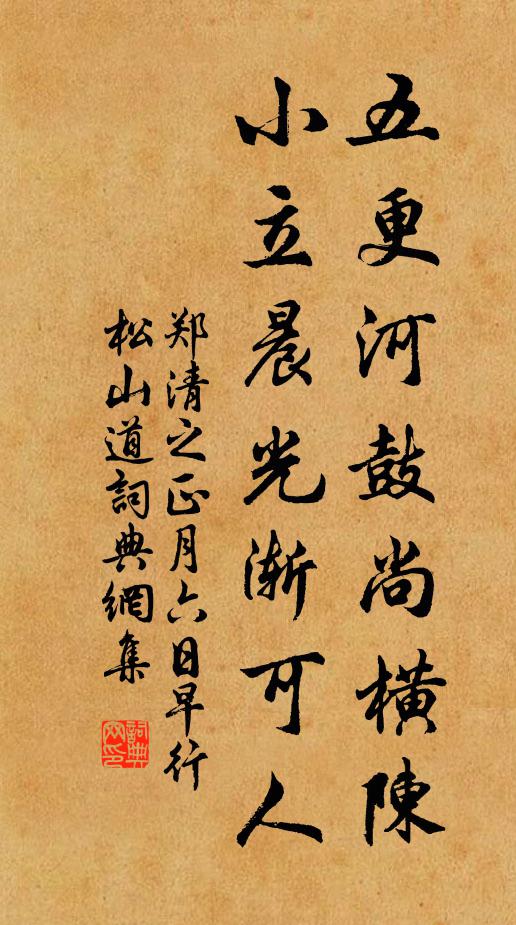 五更河鼓尚橫陳
小立晨光漸可人
郑清之正月六日早行
松山道詞典網集
詞典网印